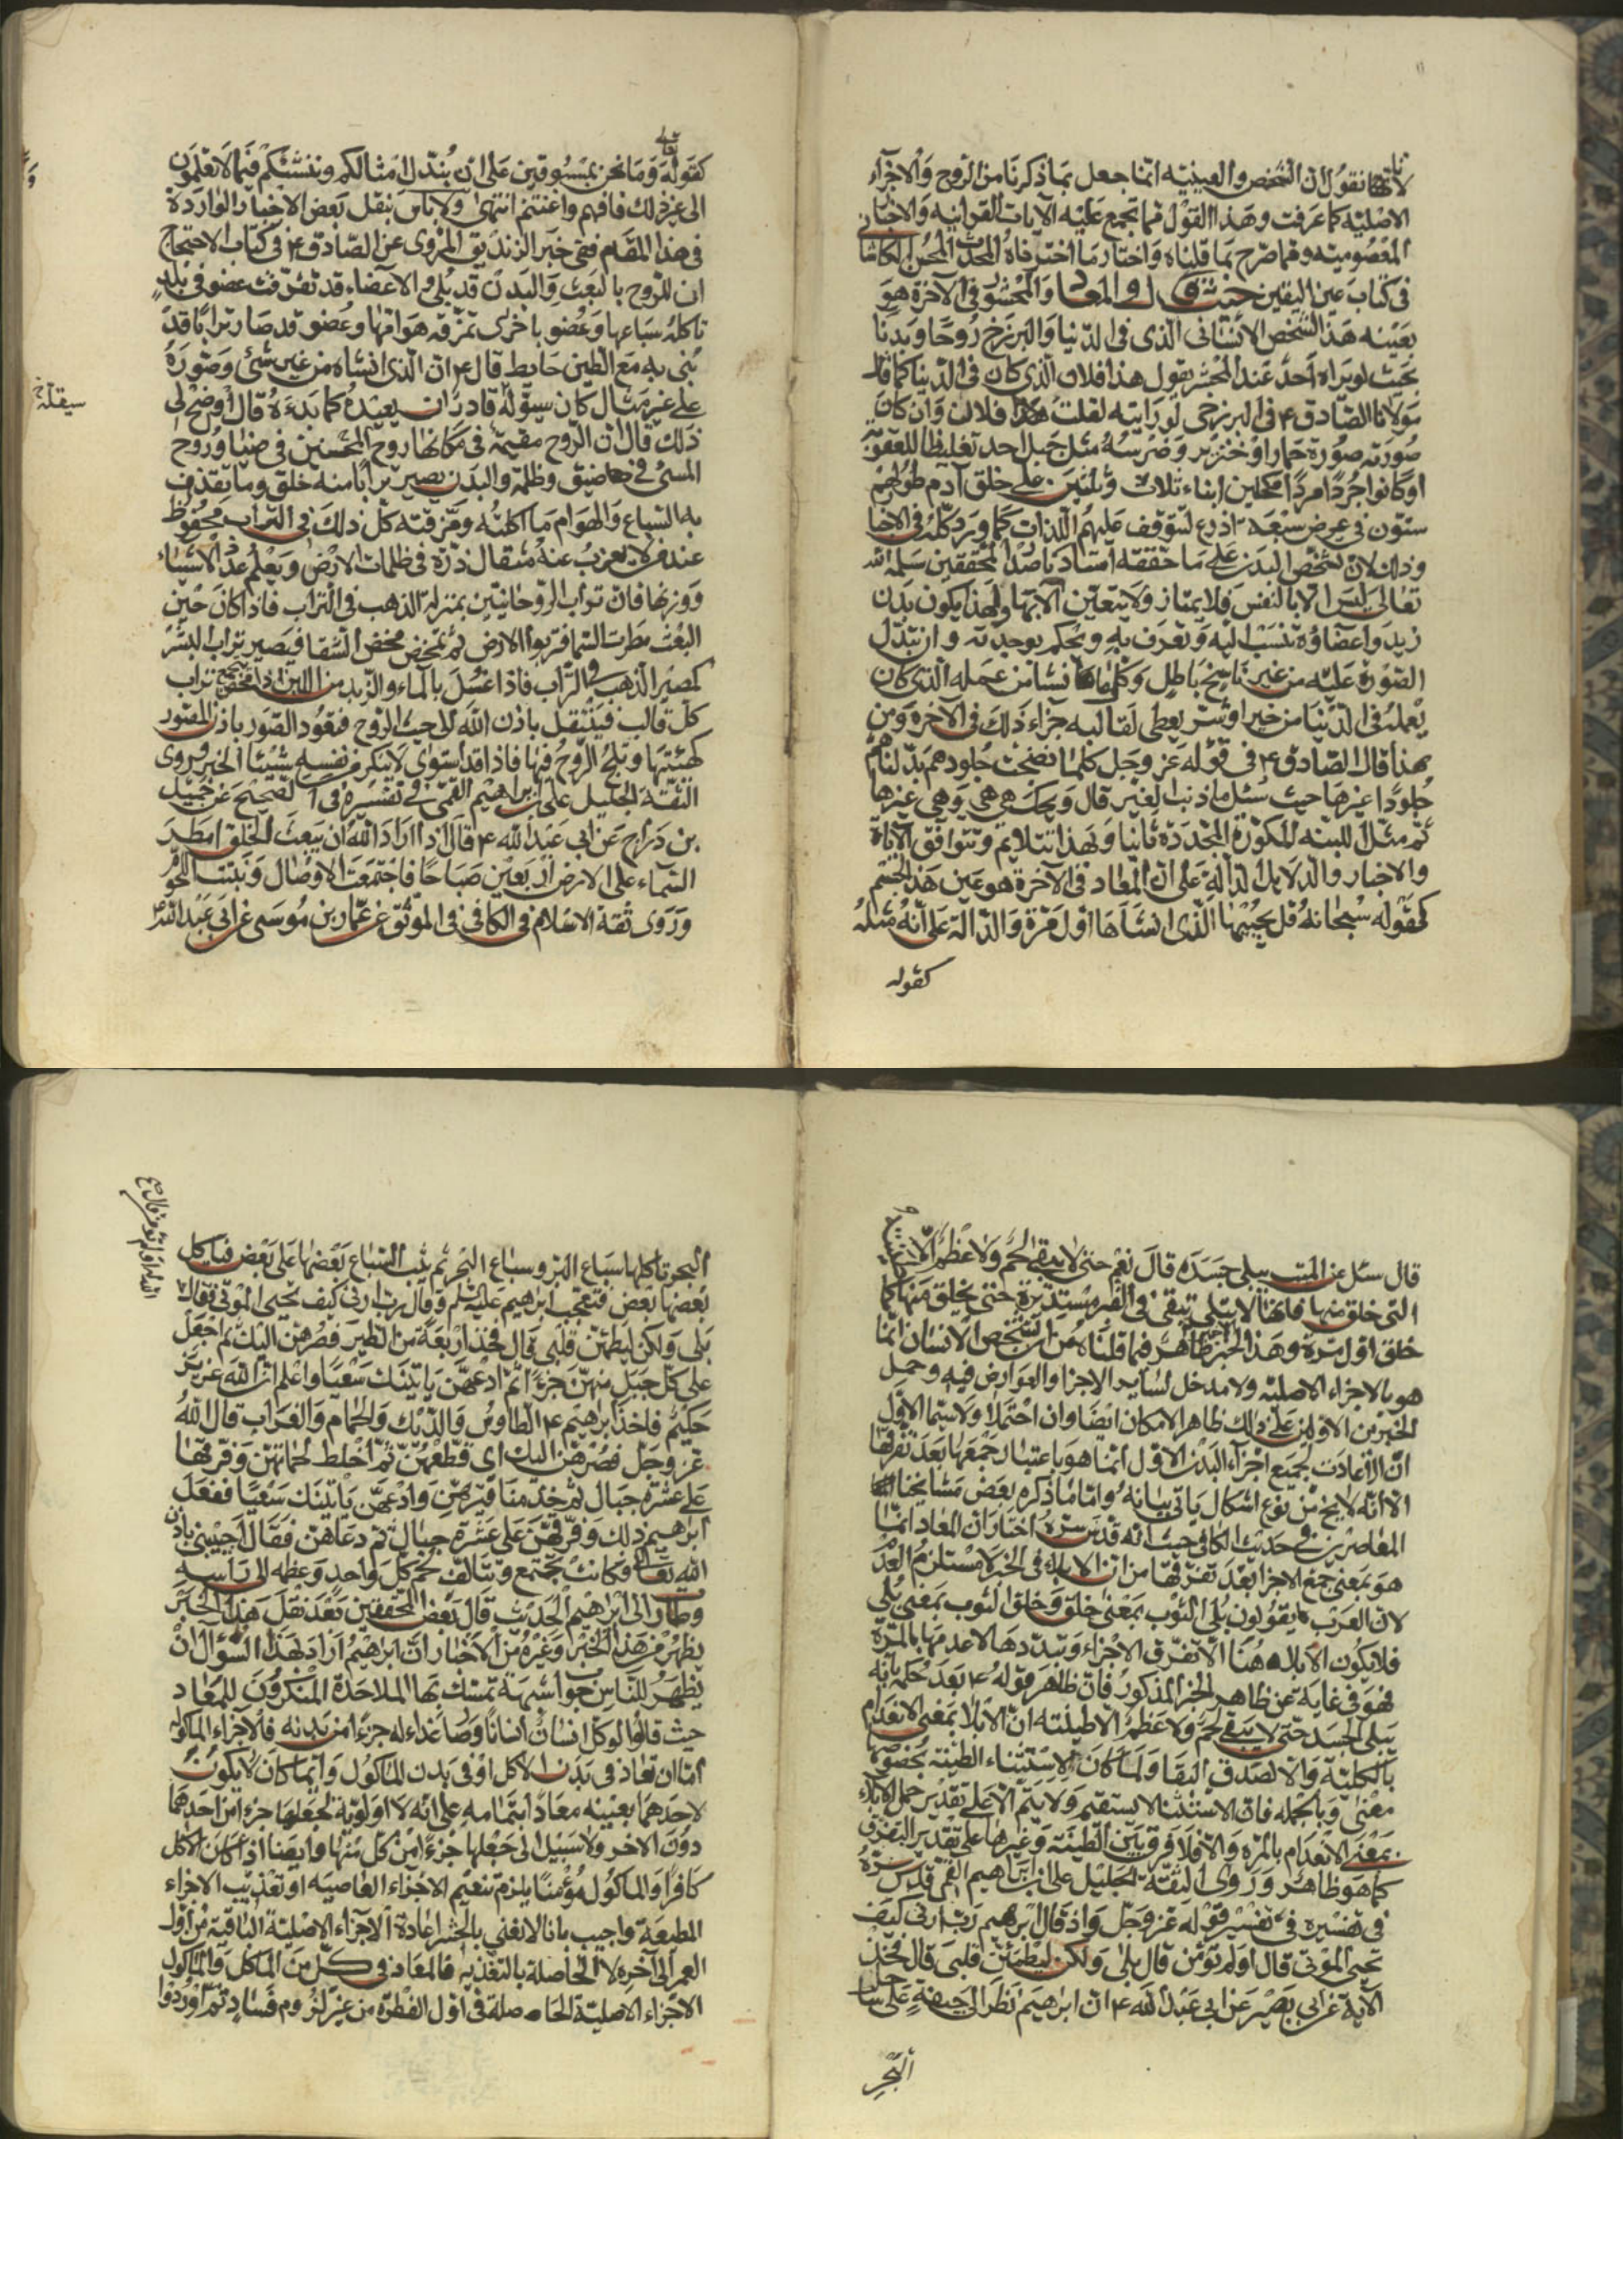 لانا نقول ان التشخص والعينية انما جعل بما ذكرنا من الروح والاجزاء
الاصلية كما عرفت وهذا القول مما تجمع عليه الآيات القرآنية والاخبار
المعصومية وممن صرح بما قلناه واختار ما اخترناه المحدث المحسن الكاشاني
في كتاب عين اليقين حيث قال والمعاد والمحشور في الآخرة هو
بعينه هذا الشخص الانساني الذي في الدنيا والبرزخ روحا وبدنا
بحيث لو يراه احد عند المحشر يقول هذا فلان الذي كان في الدنيا كما قال
مولانا الصادق ع في البرزخي لو رايته لقلت هذا فلان وان كان
صورته صورة حمار او خنزير وضرسه مثل جبل احد تغليظا للعقوبة
او كانوا جردا مردا مكحلين ابناء ثلاث وثلثين على خلق آدم طولهم
ستون في عرض سبعة اذرع لتوقف عليهم اللذات كما ورد كله في الاخبار
وذلك لان تشخص البدن على ما حققه استادنا صدر المحققين سلمه الله
تعالى ليس الا بالنفس فلا يمتاز ولا يتعين الا بها ولهذا يكون بدن
زيد واعضاؤه تنسب اليه وتعرف به ويحكم بوحدته وان تبدل
الصورة عليه من غير تناسخ باطل وكلما نشا من عمله الذي كان
يعمله في الدنيا من خير او شر يعطى لقالبه جزاء ذلك في الآخرة ومن
هذا قال الصادق ع في قوله عز وجل كلما نضجت جلودهم بدلناهم
جلودا غيرها حيث سئل ما ذنب الغير قال ويحك هي هي وهي غيرها
ثم مثل اللبنة المكورة المجددة ثانيا ولهذا تتلايم وتتوافق الآيات
والاخبار والدلايل الدالة على ان المعاد في الآخرة هو عين هذا الجسم
كقوله سبحانه قل يحييها الذي انشاها اول مرة والدالة على انه مثله
كقوله
كقوله تعالى وما نحن بمسبوقين على ان نبدل امثالكم وننشئكم فيما لا تعلمون
الى غير ذلك فافهم واغتنم انتهى ولا باس بنقل بعض الاخبار الواردة
في هذا المقام ففي خبر الزنديق المروي عن الصادق ع في كتاب الاحتجاج
انى للروح بالبعث والبدن قد بلي والاعضاء قد تفرقت عضو في بلد
تاكله سباعها وعضو باخرى تمزقه هوامها وعضو قد صار ترابا قد
بني به مع الطين حايط قال ع ان الذي انشاه من غير شئ وصوره
على غير مثال كان سبق له قادر ان يعيده كما بدءه قال اوضح لي
ذلك قال ان الروح مقيمة في مكانها روح المحسنين في ضياء وروح
المسئ في ضيق وظلمة والبدن يصير ترابا منه خلق وما تقذف
به السباع والهوام مما اكلته ومزقته كل ذلك في التراب محفوظ
عند من لا يعزب عنه مثقال ذرة في ظلمات الارض ويعلم عدد الاشياء
ووزنها فان تراب الروحانيين بمنزلة الذهب في التراب فاذا كان حين
البعث مطرت السما فتربوا الارض ثم تمخض مخض السقا فيصير تراب البشر
كمصير الذهب في التراب فاذا غسل بالماء والزبد من اللبن اذا مخض فيجتمع تراب
كل قالب فينتقل باذن الله الى حيث الروح فتعود الصور باذن المصور
كهيئتها وتلج الروح فيها فاذا قد استوى لا ينكر من نفسه شيئا الخبر وروى
الثقة الجليل علي بن ابراهيم القمي في تفسيره في الصحيح عن جميل
بن دراج عن ابي عبد الله ع قال اذا اراد الله ان يبعث الخلق امطر
السماء على الارض اربعين صباحا فاجتمعت الاوصال ونبتت اللحوم
وروى ثقة الاسلام في الكافي في الموثق عن عمار بن موسى عن ابي عبد الله ع
قال سئل عن الميت يبلى جسده قال نعم حتى لا يبقى لحم ولا عظم الا طينته
التي خلق منها فانها لا تبلى تبقى في القبر مستديرة حتى يخلق منها كما
خلق اول مرة وهذا الخبر ظاهر فيما قلناه من ان تشخص الانسان انما
هو بالاجزاء الاصلية ولا مدخل لساير الاجزا والعوارض فيه وحمل
الخبرين الاولين على ذلك ظاهر الامكان ايضا وان احتملا ولا سيما الاول
ان الاعادة لجميع اجزاء البدن الاول انما هو باعتبار جمعها بعد تفرقها
الا انه لا يخ من نوع اشكال ياتي بيانه واما ما ذكره بعض مشايخنا
المعاصرين في حديث الكافي حيث انه قدس سره اختار ان المعاد انما
هو بمعنى جمع الاجزا بعد تفرقها من ان الابلاء في الخبر لا يستلزم العدم
لان العرب يقولون بلي الثوب بمعنى خلق وخلق الثوب بمعنى بلي
فلا يكون الابلاء هنا الا تفرق الاجزاء وتبددها لا عدمها بالمرة
فهو في غاية عن ظاهر الخبر المذكور فان ظاهر قوله ع بعد حكمه بانه
يبلى الجسد حتى لا يبقى لحم ولا عظم الا طينته ان الابلا بمعنى الانعدام
بالكلية والا لصدق البقا ولما كان لاستثناء الطينة بخصوصها
معنى وبالجملة فان الاستثنا لا يستقيم ولا يتم الا على تقدير حمل الابلاء
بمعنى الانعدام بالمرة والا فلا فرق بين الطينة وغيرها على تقدير التفرق
كما هو ظاهر وروى الثقة الجليل علي بن ابراهيم القمي قدس سره
في تفسيره في تفسير قوله عز وجل واذ قال ابرهيم رب ارني كيف
تحيي الموتى قال اولم تؤمن قال بلى ولكن ليطمئن قلبي قال فخذ
الآية عن ابي بصير عن ابي عبد الله ع ان ابرهيم نظر الى جيفة على ساحل
البحر
البحر تاكلها سباع البر وسباع البحر ثم تثب السباع بعضها على بعض فياكل
بعضها بعض فتعجب ابرهيم عليه السلم وقال رب ارني كيف تحيي الموتى فقال
بلى ولكن ليطمئن قلبي قال فخذ اربعة من الطير فصرهن اليك ثم اجعل
على كل جبل منهن جزءا ثم ادعهن ياتينك سعيا واعلم ان الله عزيز
حكيم فاخذ ابرهيم ع الطاوس والديك والحمام والغراب قال الله
عز وجل فصرهن اليك اي قطعهن ثم اخلط لحماتهن وفرقها
على عشرة جبال ثم خذ مناقيرهن وادعهن ياتينك سعيا ففعل
ابرهيم ذلك وفرقهن على عشرة جبال ثم دعاهن فقال اجيبيني باذن
الله تعالى فكانت تجتمع وتتالف لحم كل واحد وعظمه الى راسه
وطار الى ابرهيم الحديث قال بعض المحققين بعد نقل هذا الخبر
يظهر من هذا الخبر وغيره من الاخبار ان ابرهيم اراد بهذا السؤال ان
يظهر للناس جواب شبهة تمسك بها الملاحدة المنكرون للمعاد
حيث قالوا لو كل انسان انسانا وصار غذاء له جزءا من بدنه فالاجزاء الماكولة
اما ان تعاد في بدن الاكل او في بدن الماكول وايما كان لا يكون
لاحدهما بعينه معادا بتمامه على انه لا اولوية لجعلها جزءا من احدهما
دون الاخر ولا سبيل الى جعلها جزءا من كل منها وايضا اذا كان الاكل
كافرا والماكول مؤمنا يلزم تنعيم الاجزاء العاصية او تعذيب الاجزاء
المطيعة واجيب بانا لا نعني بالحشر اعادة الاجزاء الاصلية الباقية من اول
العمر الى آخره لا الحاصلة بالتغذية فالمعاد في كل من الماكل والماكول
الاجزاء الاصلية الحاصلة في اول الفطرة من غير لزوم فساد ثم اوردوا